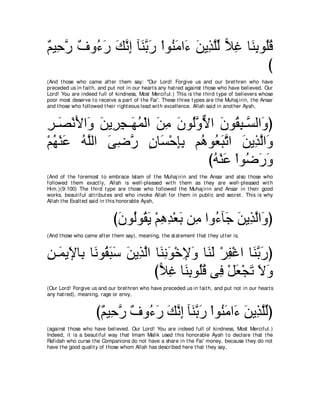 قُلُوبِنَا غِلاًّ لِّلَّذِينَ ءَامَنُواْ رَبَّنَآ إِنَّكَ رَءُوفٌ رَّحِيمٌ
)
(And those who came after them say: "Our Lord! Forgive us and our brethren who have
preceded us in faith, and put not in our hearts any hatred against those who have believed. Our
Lord! You are indeed full of kindness, Most Merciful.) This is the third type of believers whose
poor most deserve to receive a part of the Fai'. These three types are the Muhajirin, the Ansar
and those who followed their righteous lead with excellence. Allah said in another Ayah,
(وَالسَّـبِقُونَ الاٌّوَّلُونَ مِنَ الْمُهَـجِرِينَ وَالأَنْصَـرِ
وَالَّذِينَ اتَّبَعُوهُم بِإِحْسَانٍ رَّضِىَ اللَّهُ عَنْهُمْ
وَرَضُواْ عَنْهُ)
(And of the foremost to embrace Islam of the Muhajirin and the Ansar and also those who
followed them exactly, Allah is well-pleased with them as they are well-pleased with
Him.)(9:100) The third type are those who followed the Muhajirin and Ansar in their good
works, beautiful attributes and who invoke Allah for them in public and secret. This is why
Allah the Exalted said in this honorable Ayah,
(وَالَّذِينَ جَآءُوا مِن بَعْدِهِمْ يَقُولُونَ)
(And those who came after them say), meaning, the statement that they utter is,
(رَبَّنَا اغْفِرْ لَنَا وَلإِخْوَنِنَا الَّذِينَ سَبَقُونَا بِالإَيمَـنِ
وَلاَ تَجْعَلْ فِى قُلُوبِنَا غِلاًّ)
(Our Lord! Forgive us and our brethren who have preceded us in faith, and put not in our hearts
any hatred), meaning, rage or envy,
(لِّلَّذِينَ ءَامَنُواْ رَبَّنَآ إِنَّكَ رَءُوفٌ رَّحِيمٌ)
(against those who have believed. Our Lord! You are indeed full of kindness, Most Merciful.)
Indeed, it is a beautiful way that Imam Malik used this honorable Ayah to declare that the
Rafidah who curse the Companions do not have a share in the Fai' money, because they do not
have the good quality of those whom Allah has described here that they say,